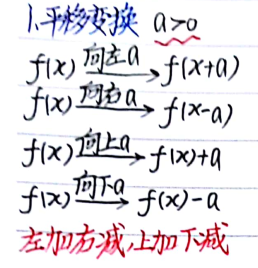 1.平移变换 a>0
f(x) 向左a→ f(x+a)
f(x) 向右a→ f(x-a)
f(x) 向上a→ f(x)+a
f(x) 向下a→ f(x)-a
左加右减,上加下减